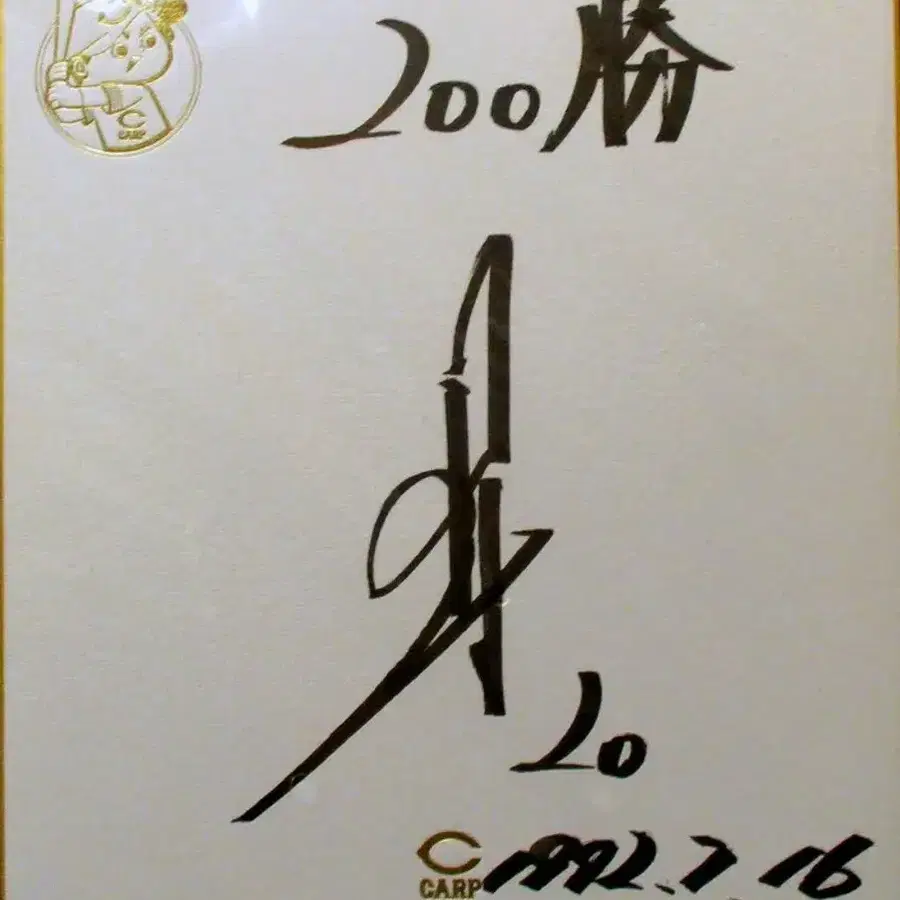 C
CARP
200勝
20
C
CARP 1992.7.16